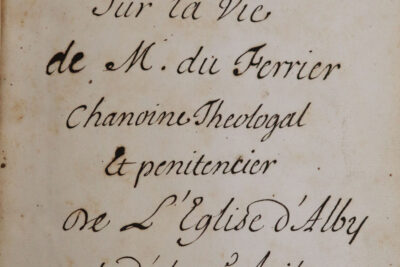 Sur la Vie
de M. du Ferrier
Chanoine Theologal
Et penitencier
De L'Eglise d'Alby